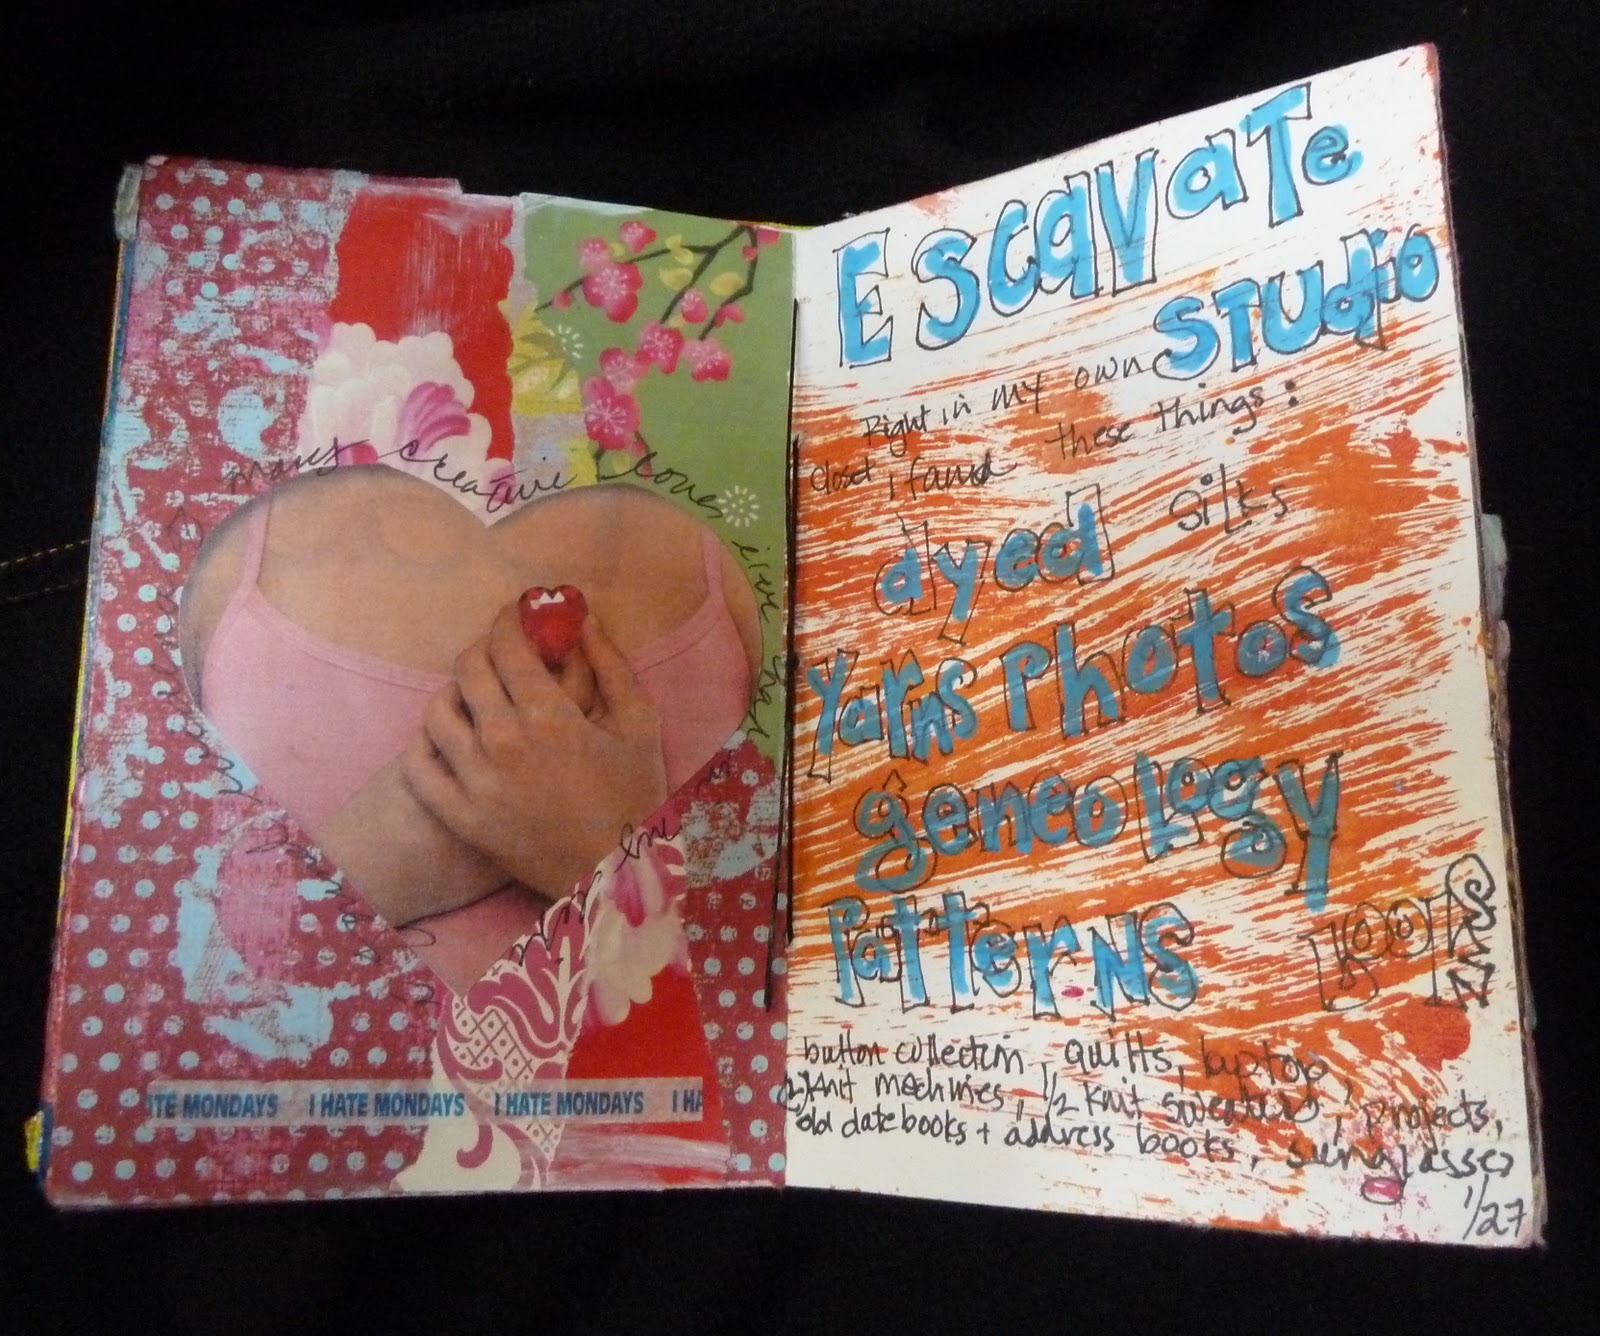 many creative loves
I HATE MONDAYS I HATE MONDAYS I HATE MONDAYS I HA
EscavaTe
STUdio
Right in my own
closet i found these things:
dyed silks
Yarns Photos
geneology
PatterNs Books
button collection, quilts, laptop,
(2) Knit mechines, 1/2 knit sweaters, projects,
old datebooks + address books, sunglasses
1/27